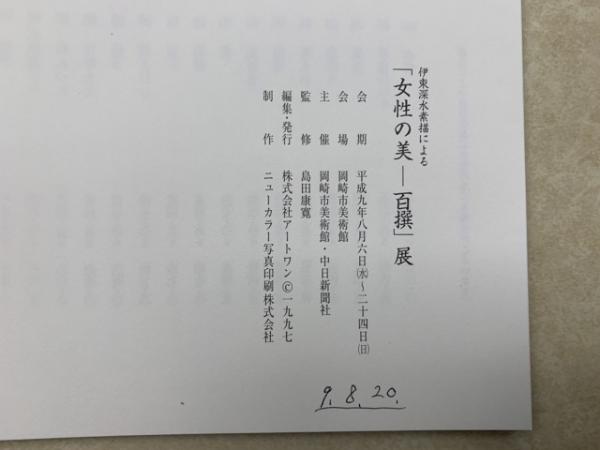 伊東深水素描による
「女性の美―百撰」展
会期 平成九年八月六日㈬~二十四日㈰
会場 岡崎市美術館
主催 岡崎市美術館・中日新聞社
監修 島田康寬
編集・発行 株式会社アートワン©一九九七
制作 ニューカラー写真印刷株式会社
9.8.20.